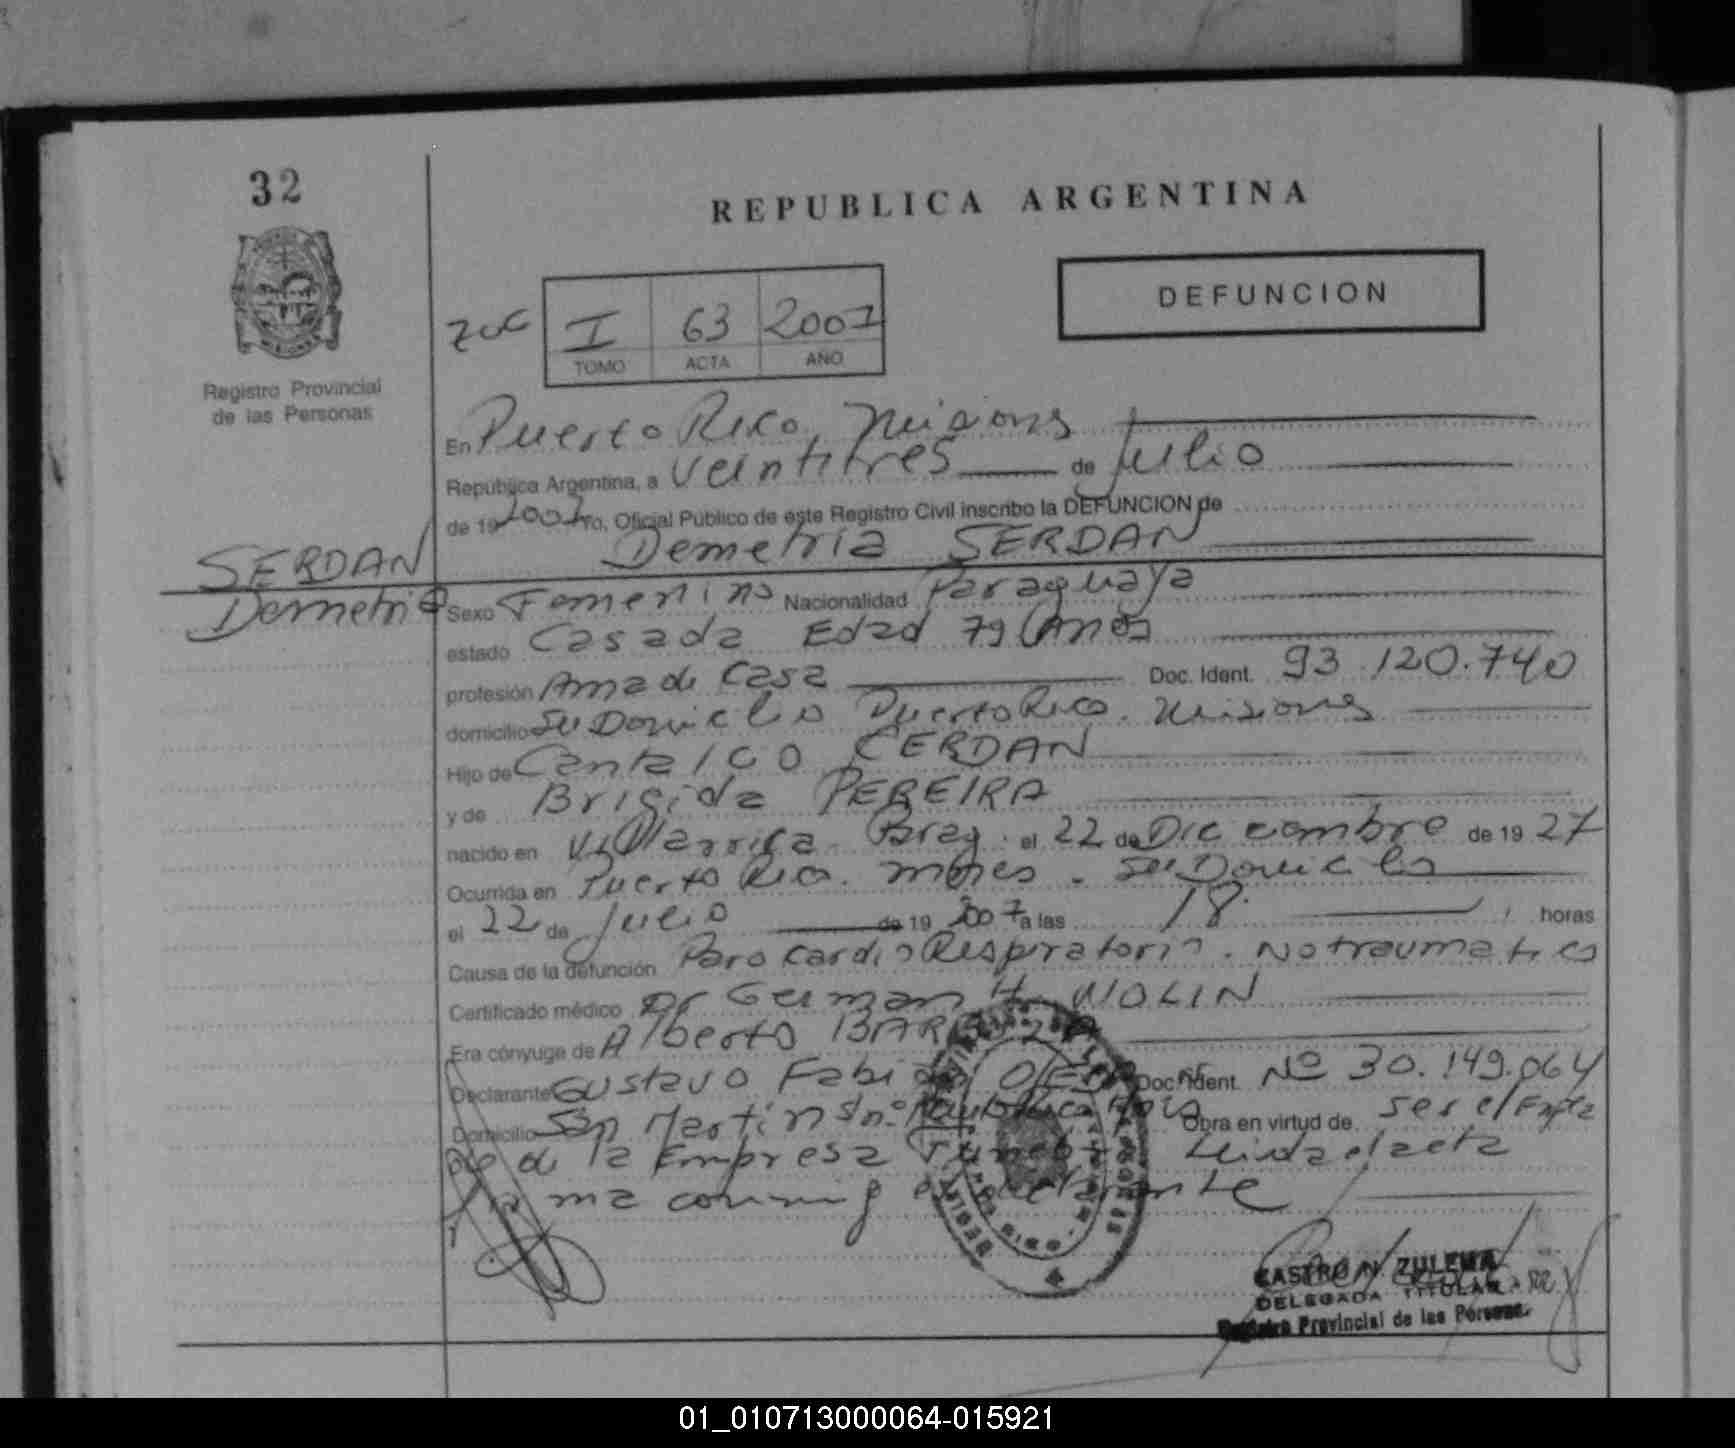 32
REPUBLICA ARGENTINA
DEFUNCION
I 63 2007
TOMO ACTA AÑO
Registro Provincial
de las Personas
En Puerto Rico, Misiones
República Argentina, a veintitres de Julio
de 19 2007 Yo, Oficial Público de este Registro Civil inscribo la DEFUNCION de
Demetria SERDAN
SERDAN
Demetria
Sexo Femenino Nacionalidad Paraguaya
estado Casada Edad 79 Años
profesión Ama de Casa Doc. Ident. 93.120.740
domicilio Su Domicilio Puerto Rico. Misiones
Hijo de CERDAN
y de Brigida PEREIRA
nacido en Villarrica. Parag. el 22 de Diciembre de 19 27
Ocurrida en Puerto Rico. Mnes. Su Domicilio
el 22 de Julio de 19 2007 a las 18 horas
Causa de la defunción Paro Cardio Respiratorio. No traumatico
Certificado médico Dr German H. WOLIN
Era cónyuge de Alberto
Declarante Gustavo Fabian Doc. Ident. Nº 30.149.064
Domicilio San Martin s/nº Obra en virtud de ser el
de la Empresa
firma conmigo el declarante
CASTRO N. ZULEMA
DELEGADA TITULAR
Registro Provincial de las Personas
01_010713000064-015921